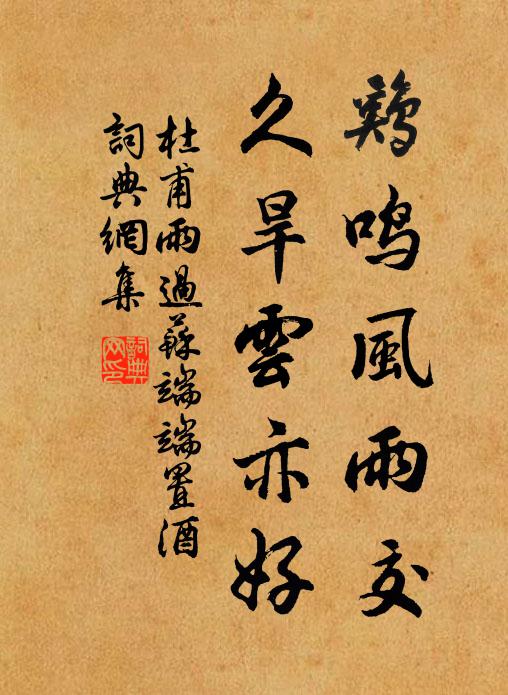 鷄鳴風雨交
久旱雲亦好
杜甫雨過蘇端端置酒
詞典網集
詞典网印